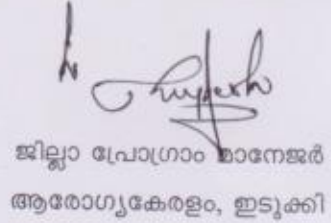 ജില്ലാ പ്രോഗ്രാം മാനേജർ
ആരോഗ്യകേരളം, ഇടുക്കി